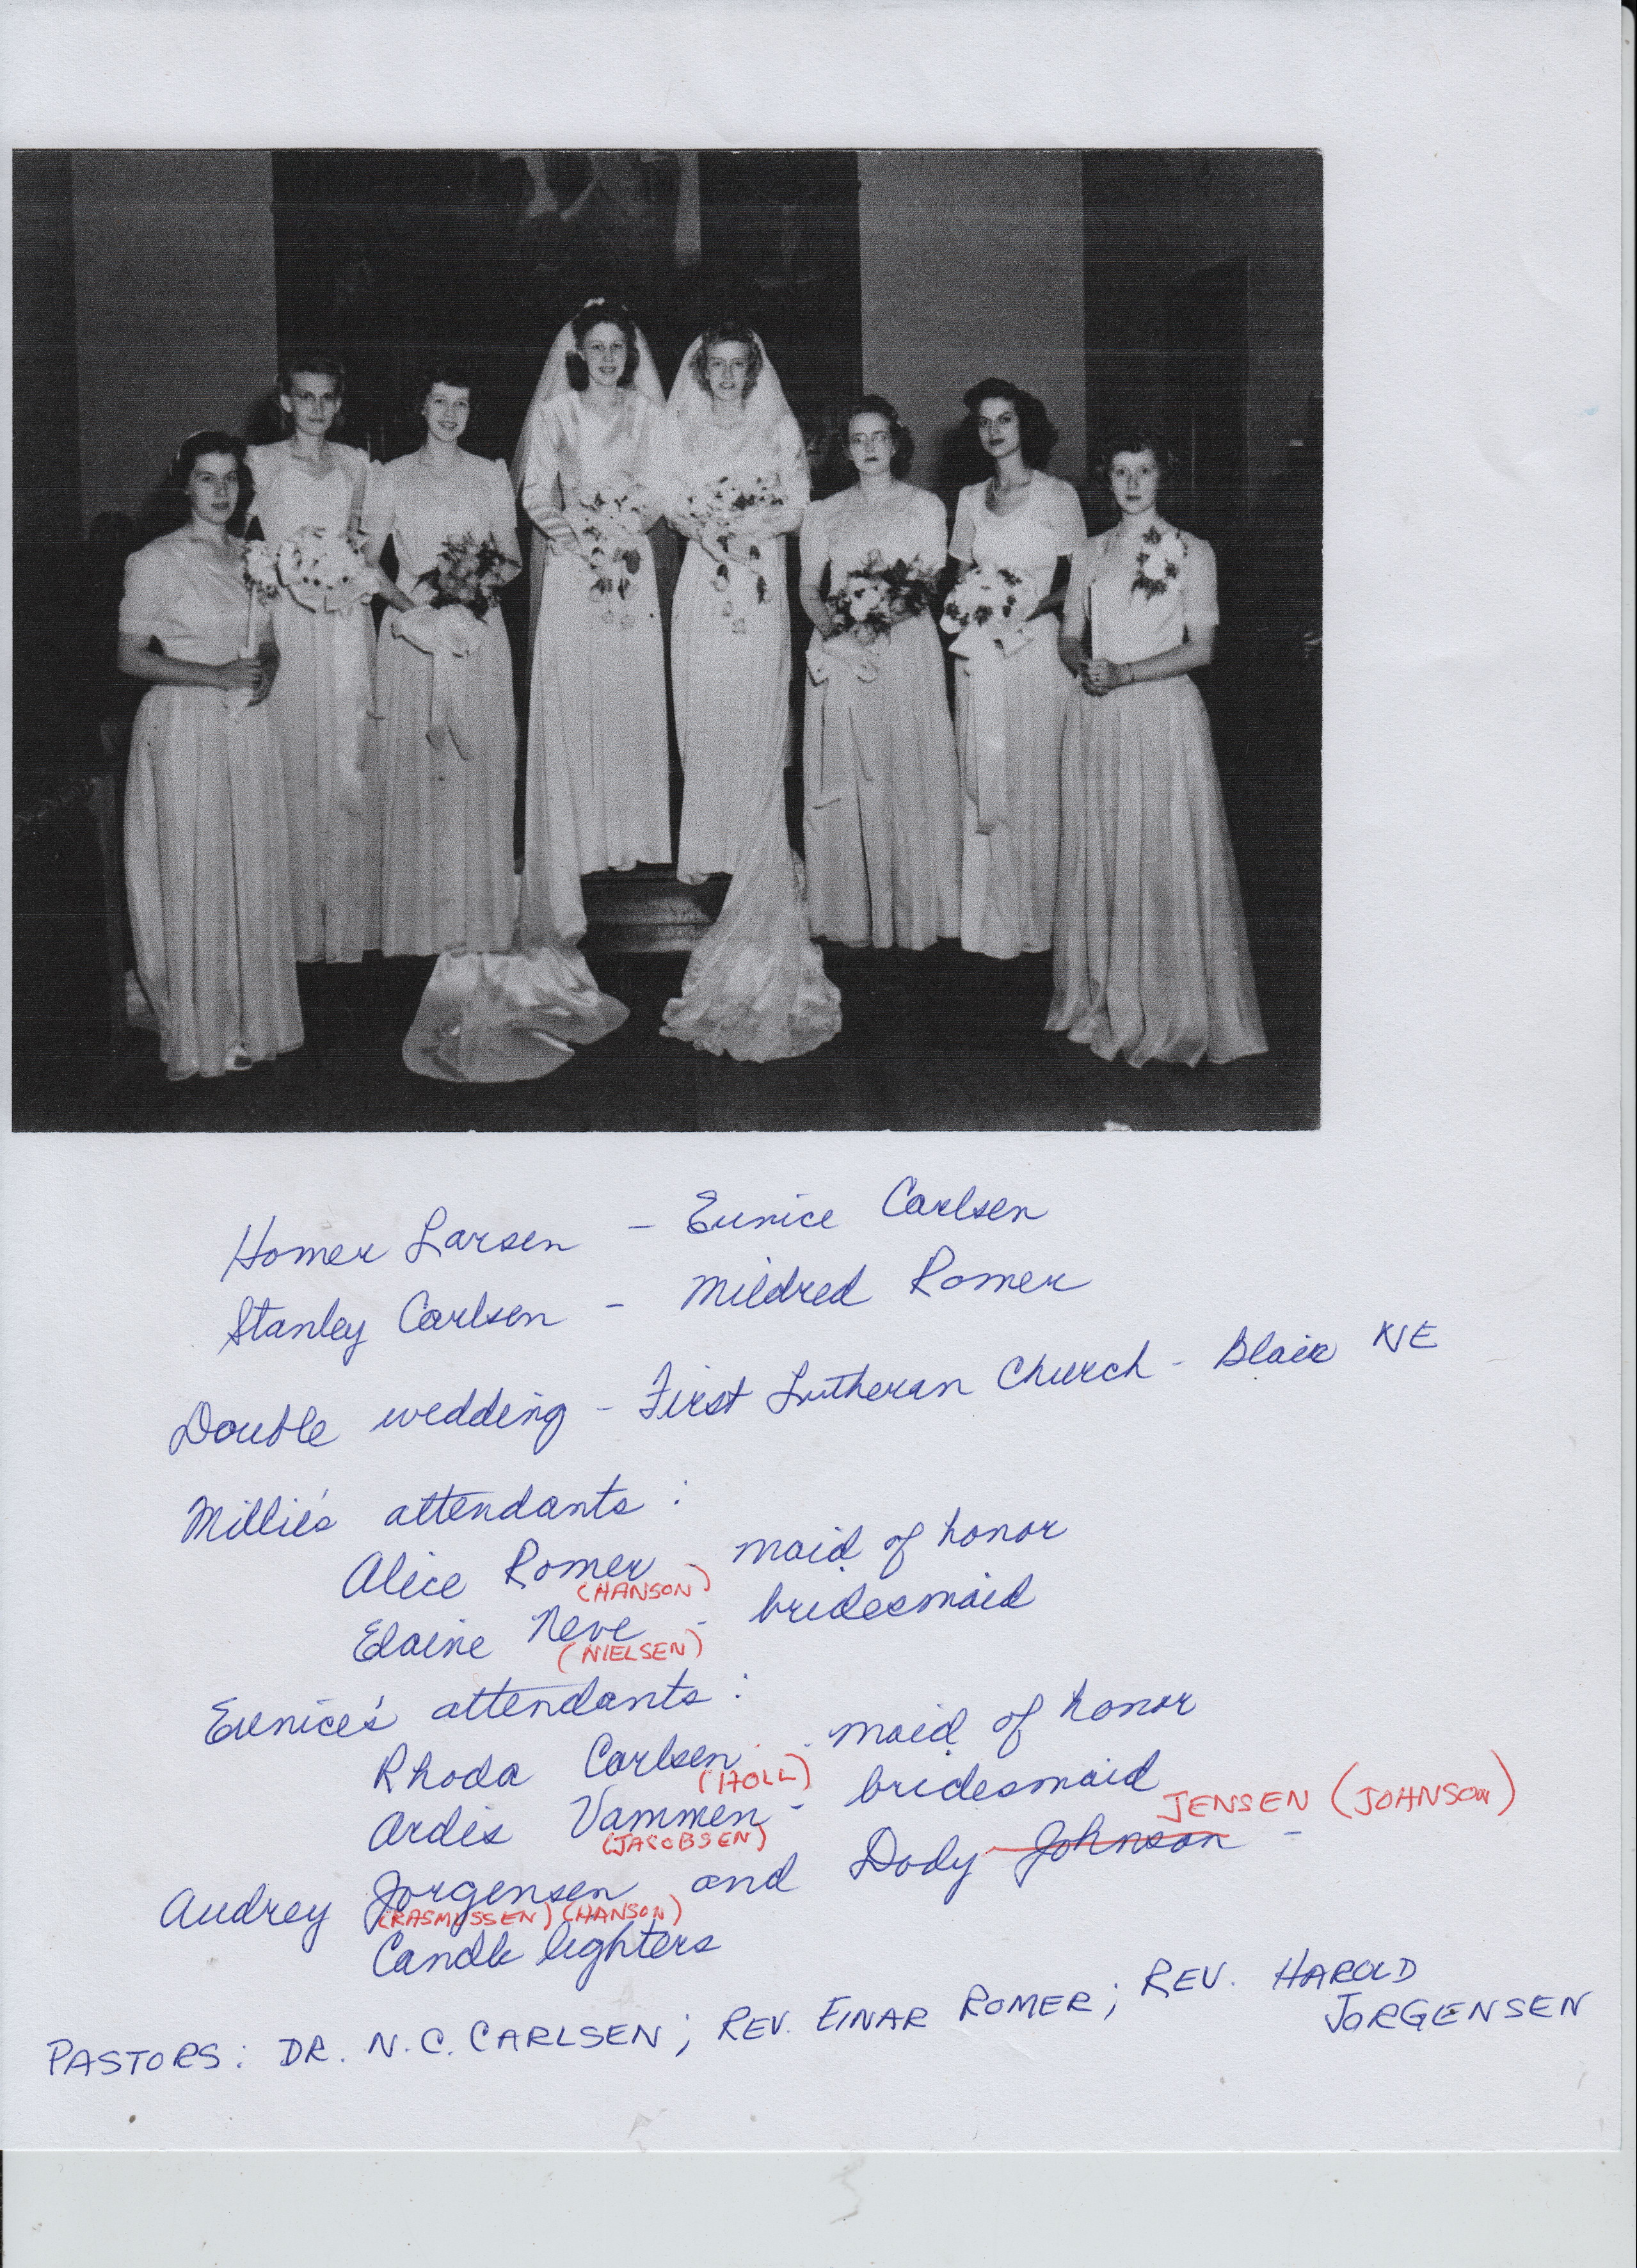 Homer Larsen - Eunice Carlsen
Stanley Carlsen - Mildred Romer
Double wedding - First Lutheran Church - Blair NE
Millie's attendants:
Alice Romer maid of honor
(HANSON)
Elaine Neve - bridesmaid
(NIELSEN)
Eunice's attendants:
Rhoda Carlsen - maid of honor
(HOLL)
Ardis Vammen - bridesmaid
(JACOBSEN)
JENSEN (JOHNSON)
Audrey Jorgensen and Dody Johnson -
(RASMUSSEN) (HANSON)
Candle lighters
PASTORS: DR. N.C. CARLSEN; REV. EINAR ROMER; REV. HAROLD
JORGENSEN